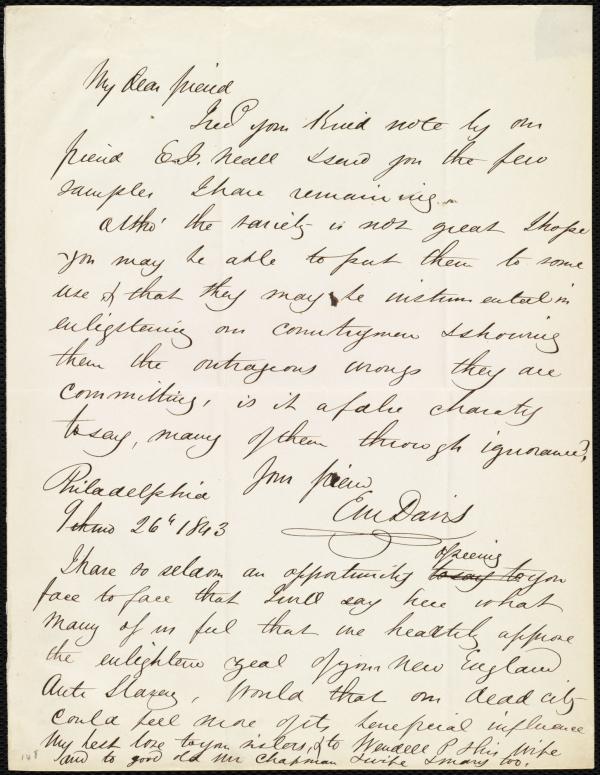 My dear friend
I rec'd your kind note by our
friend E.J. Neall & send you the few
samples I have remaining.
Altho' the variety is not great I hope
you may be able to put them to some
use & that they may be instrumental in
enlightening our countrymen & showing
them the outrageous wrongs they are
committing, is it a false charity
to say, many of them through ignorance?
Your friend
Philadelphia
E M Davis
9th mo 26th 1843
of seeing
I have so seldom an opportunity to say to you
face to face that I will say here what
many of us feel that we heartily approve
the enlightened zeal of your New England
Anti Slavery, Would that our dead city
could feel more of its beneficial influence
My best love to your sisters, & to Wendell P & his wife
and to good old Mr Chapman & wife & Mary too.
148